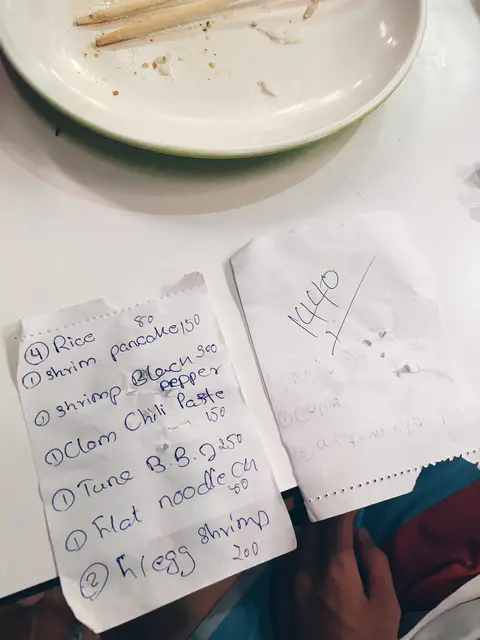 ④ Rice 80
① shrim pancake 150
① shrimp Black 300
pepper
① Clam Chili Paste
150
① Tuna B.B.Q 250
① Flat noodle CK
80
② h/egg shrimp
200
1440